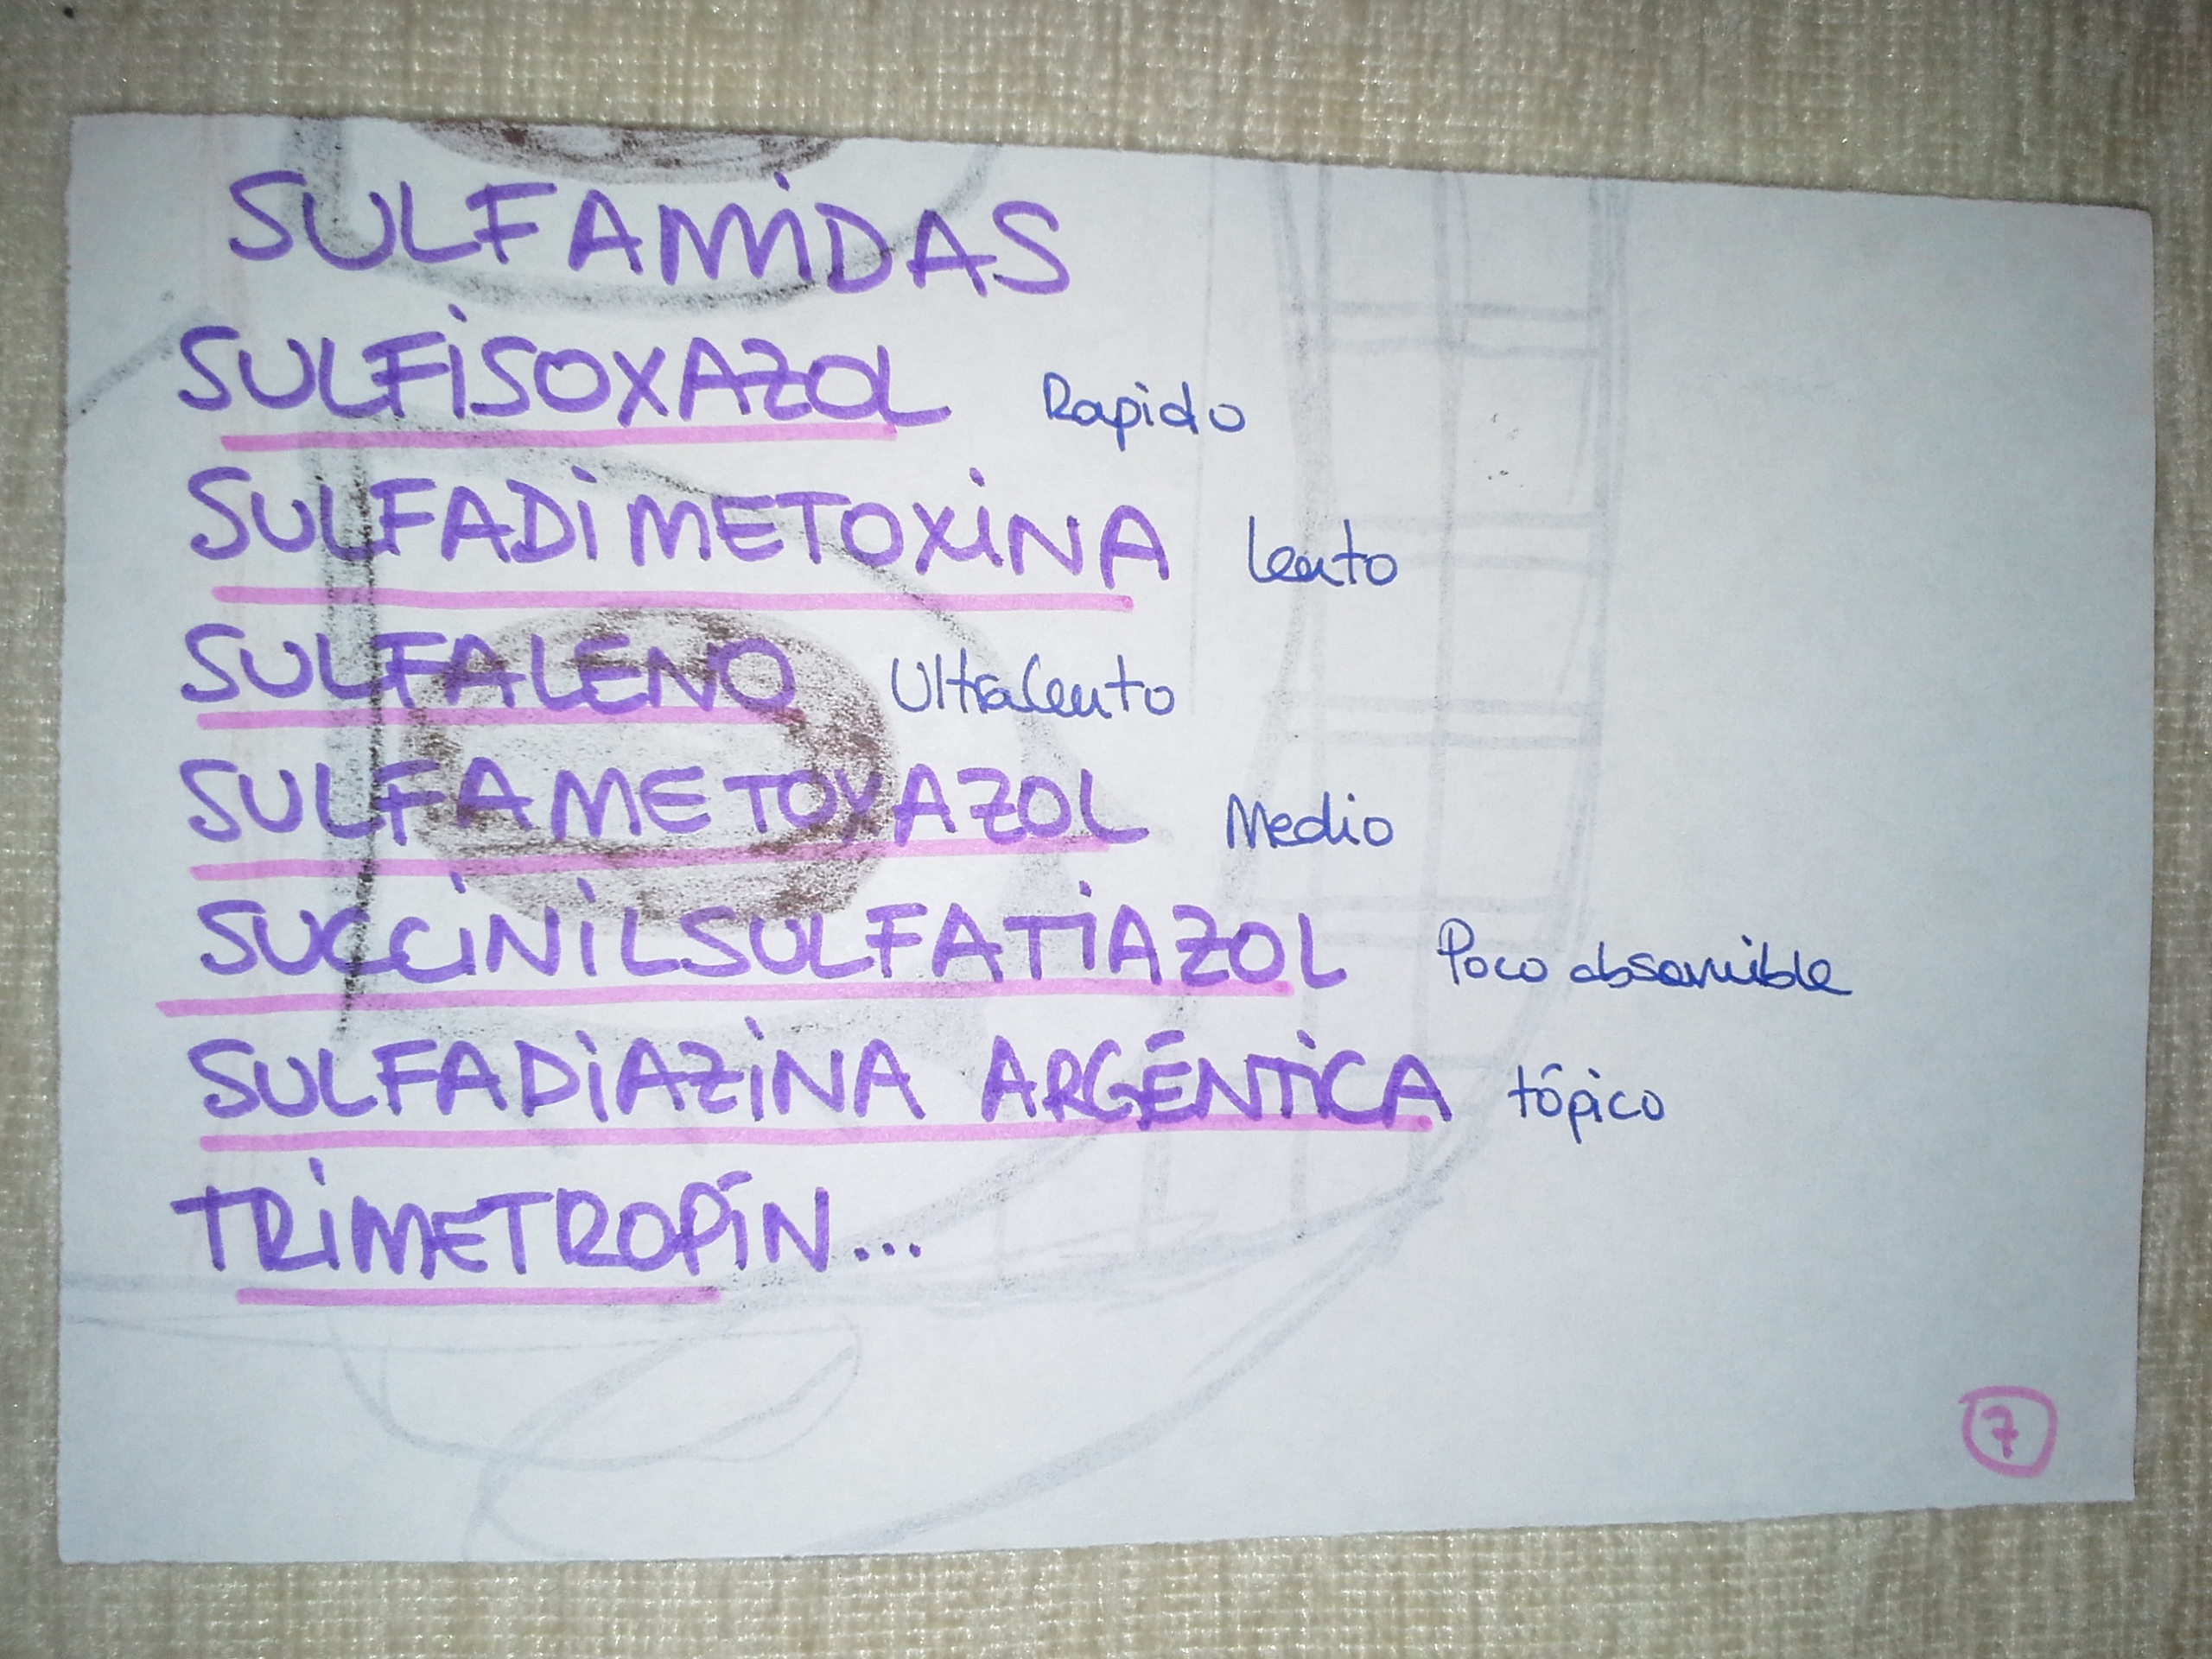 SULFAMiDAS
SULFiSOXAZOL Rapido
SULFADiMETOXiNA Lento
SULFALENO Ultralento
SULFAMETOXAZOL Medio
SUCCiNiLSULFATiAZOL Poco absorvible
SULFADiAZiNA ARGÉNTiCA tópico
TRiMETROPíN...
7